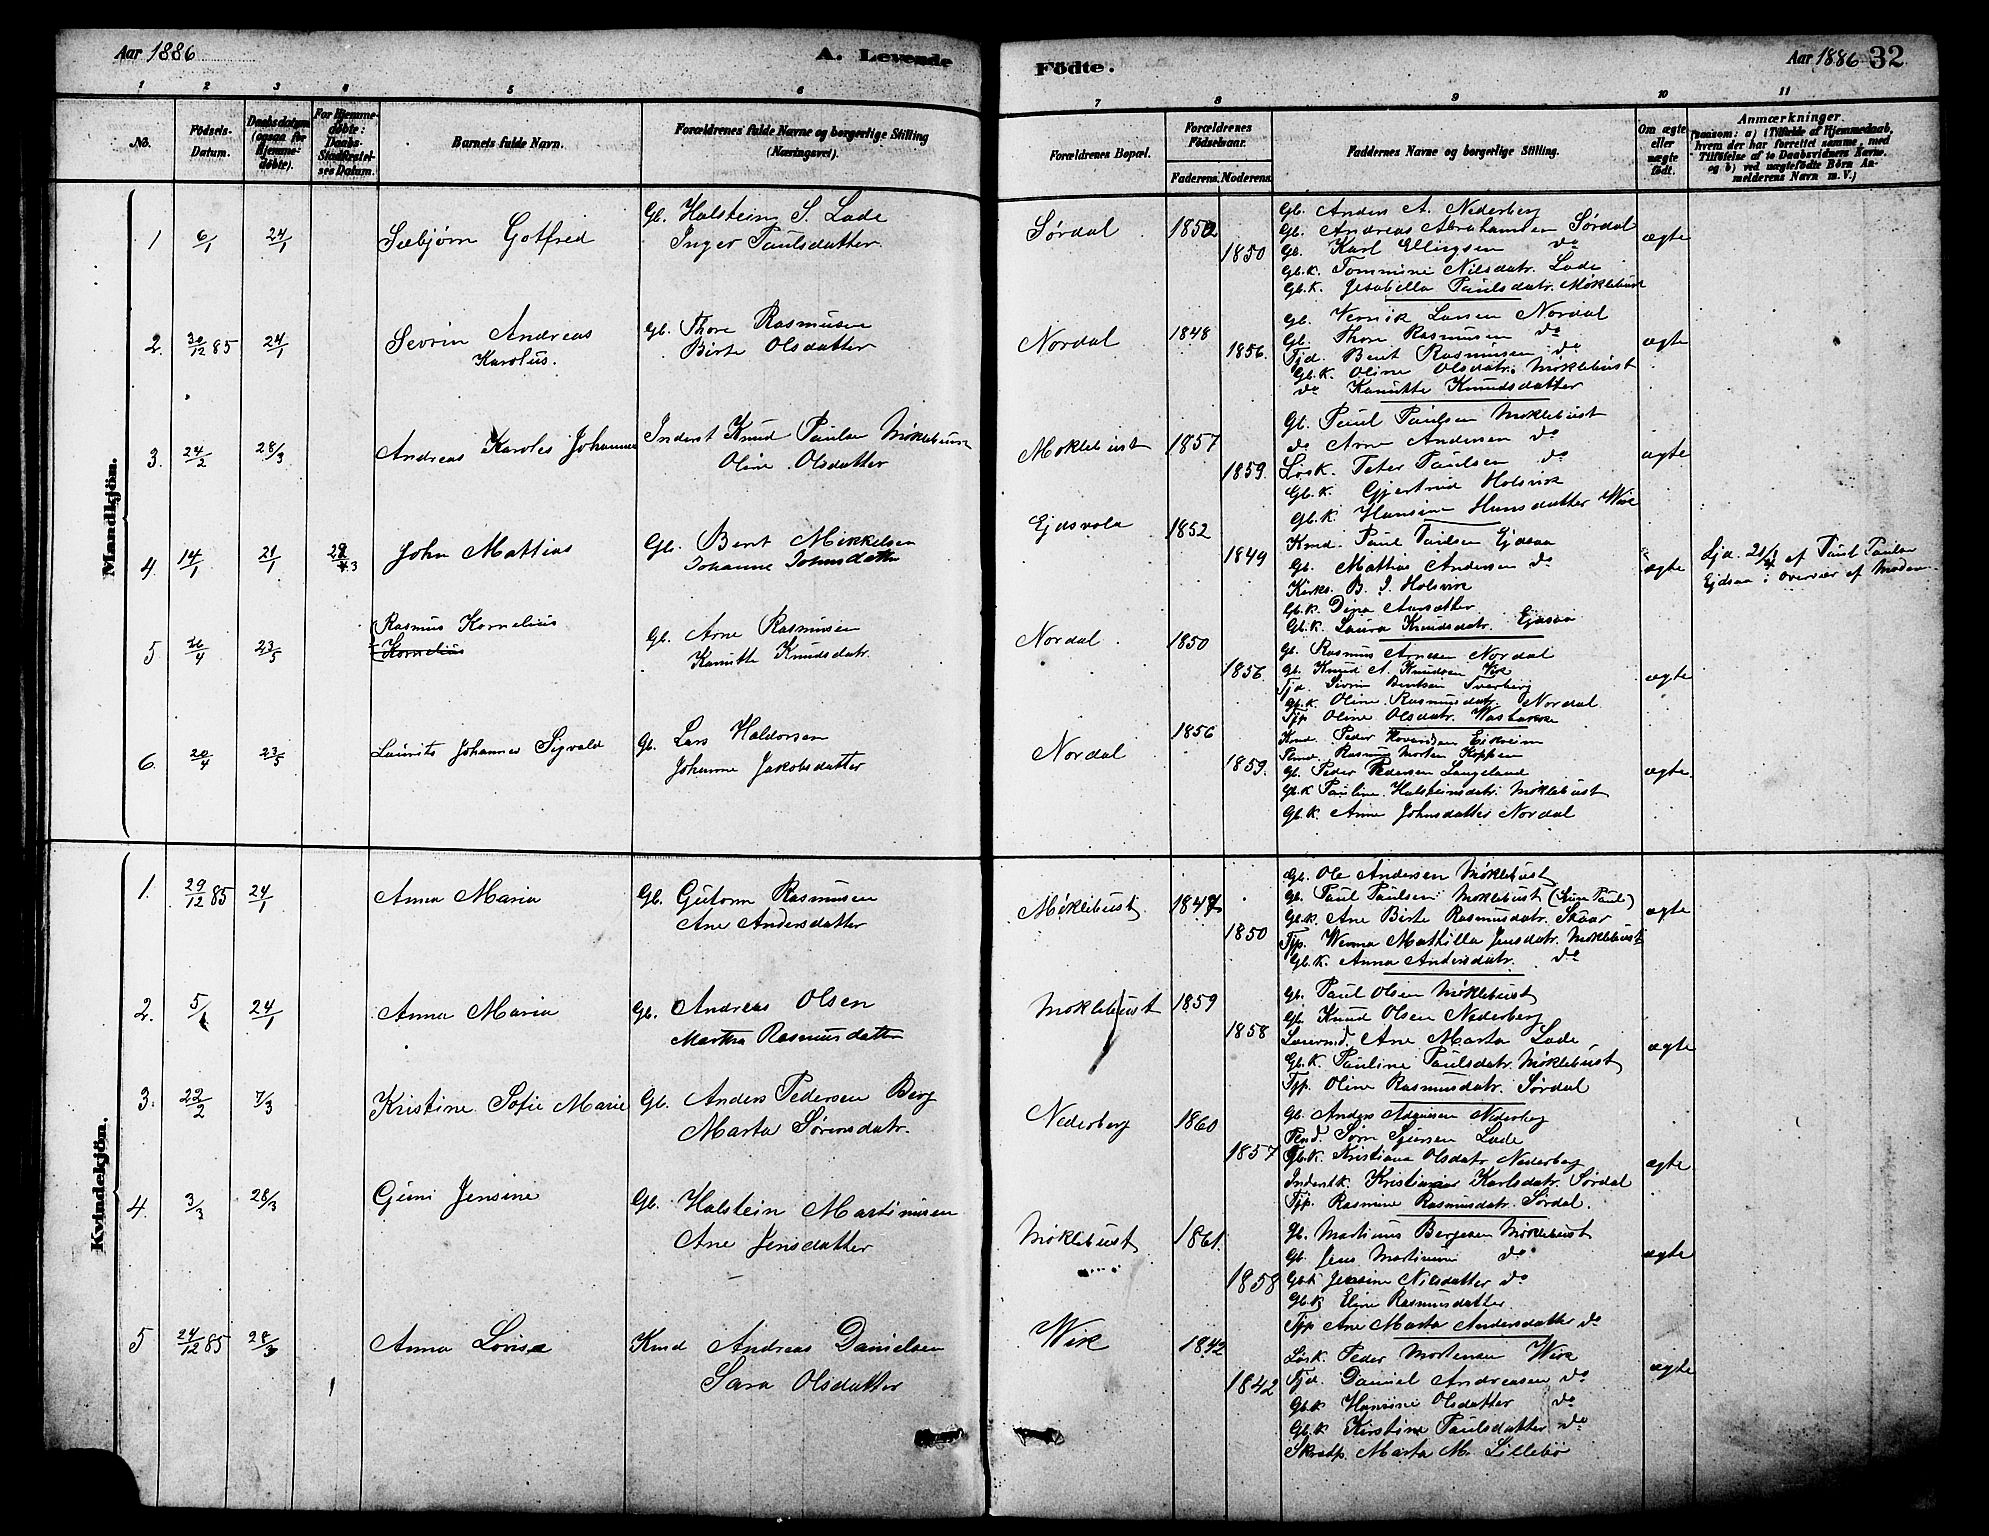 Aar 1886
A. Levende
Födte.
Aar 1886 32
1 2 3 4 5 6 7 8 9 10 11
No.
Födsels-Datum.
Daabsdatum (ogsaa for Hjemmedöbte).
For Hjemmedöbte: Daabs-Stadfæstelses Datum.
Barnets fulde Navn.
Forældrenes fulde Navne og borgerlige Stilling (Næringsvei).
Forældrenes Bopæl.
Forældrenes Födselsaar.
Faderens. Moderens.
Faddernes Navne og borgerlige Stilling.
Om ægte eller uægte födt.
Anmærkninger.
(saasom: a) i Tilfælde af Hjemmedaab, hvem der har forrettet samme, med Tilföielse af to Daabsvidners Navne, og b) ved uægtefödte Börn Anmelderens Navn m. V.)
Mandkjön.
1 6/1 24/1 Sæbjørn Gotfred
Gb. Holstein S. Lade
Inger Paulsdatter
Sørdal 1852
1850
Gb. Anders A. Nederberg
Gb. Andreas Abrahamsen Sørdal
Gb. Karl Ellingsen do
Gb.k. Tommine Nilsdatr. Lade
Gb.k. Jesabella Paulsdatr. Møklebust
ægte
2. 30/12 85 24/1 Sevrin Andreas
Karolus.
Gb. Thore Rasmusen
Birte Olsdatter
Nordal 1848
1856.
Gb. Vernik Larsen Nordal
Gb. Thore Rasmusen do
Tjd. Bent Rasmusen do
Gb.k. Oline Olsdatr. Møklebust
do Kanutte Knudsdatter
ægte
3. 24/2 28/3 Andreas Karoles Johannes
Inderst Knud Paulsen Møklebust
Oline Olsdatter
Møklebust 1857
1859.
Gb. Paul Paulsen Møklebust
do Arne Andersen do
Løsk. Peter Paulsen do
Gb.k. Gjertrud Holsvik
Gb.k Hansine Hansdatter Wik
ægte
4. 14/1 21/1 John Mattias
Gb. Bent Mikkelsen
Johanne Johnsdatter
Ejdsvola 1852
1849
Kmd. Paul Paulsen Ejdsaa
Gb. Mattias Andersen do
Kirks. B. J. Holsvik
Gb.k. Dina
Gb.k. Laura Knudsdatr. Ejdsaa
ægte
21/1 af Paul Paulsen
Ejdsaa i overvær af Moderen
5. 26/4 23/5 Rasmus Kornelius
Kornelius
Gb. Arne Rasmusen
Kanutte Knudsdatr.
Nordal. 1850
1856.
Gb. Rasmus Arnesen Nordal
Gb. Knud A. Knudsen Wik
Tjd. Sivrin Bentsen Tverberg
Gb.k. Oline Rasmusdatr. Nordal
Tjp. Oline Olsdatr.
ægte
6. 20/4 23/5 Laurits Johannes Sigvald
Gb. Lars Haldorsen
Johanne Jakobsdatter
Nordal 1856
1859.
Kmd. Peder
Rasmus Morten Koppen
Gb. Peder Pedersen Langeland
Gb.k Pauline Halsteinsdatr. Møklebust
Gb.k. Anne Johnsdatter Nordal
ægte
Kvindekjön.
1. 29/12 85 24/1 Anna Maria
Gb. Gutorm Rasmusen
Ane Andersdatter
Møklebust 1847
1850
Gb. Ole Andersen Møklebust
Gb. Paul Paulsen Møklebust
Gb.k. Ane Birte Rasmusdatr. Skaar
Tjp. Werina Mathilla Jensdatr. Møklebust
Gb.k. Anna Andersdatr. do
ægte
2. 5/1 24/1 Anna Maria
Gb. Andreas Olsen
Martha Rasmusdatter
Møklebust 1859
1858
Gb. Paul Olsen Møklebust
Gb. Knud Olsen Nederberg
Ane Marta Lade
Gb.k. Pauline Paulsdatr. Møklebust
Tjp. Oline Rasmusdatr. Sørdal
ægte
3. 22/2 7/3 Kristine Sofie Marie
Gb. Anders Pedersen Berg
Marta Sørensdatr.
Nederberg 1860
1857
Gb. Anders Nederberg
Søren Lade
Gb.k. Kristiana Olsdatr. Nederberg
Inderstk. Kristianne Karlsdatr. Sørdal
Tjp. Rasmine Rasmusdatr. Sørdal.
ægte
4 3/3 28/3 Guni Jensine
Gb. Halstein Martinusen
Ane Jensdatter
Møklebust 1861.
1858
Gb. Martinus Bergesen Møklebust
Gb. Jens Martinus do
Gb.k Jensine Nilsdatter do
Gb.k Eline Rasmusdatter
Tjp. Ane Marta Andersdatter do
ægte
5 24/12 85 28/3 Anna Lovise
Kmd Andreas Danielsen
Sara Olsdatter
Wik 1842
1842
Løsk. Peder Mortensen Wik
Tjd. Daniel Andreasen do
Gb.k Hansine Olsdatter do
Gb.k Kirstine Paulsdatter do
Marta M. Lillebø
ægte